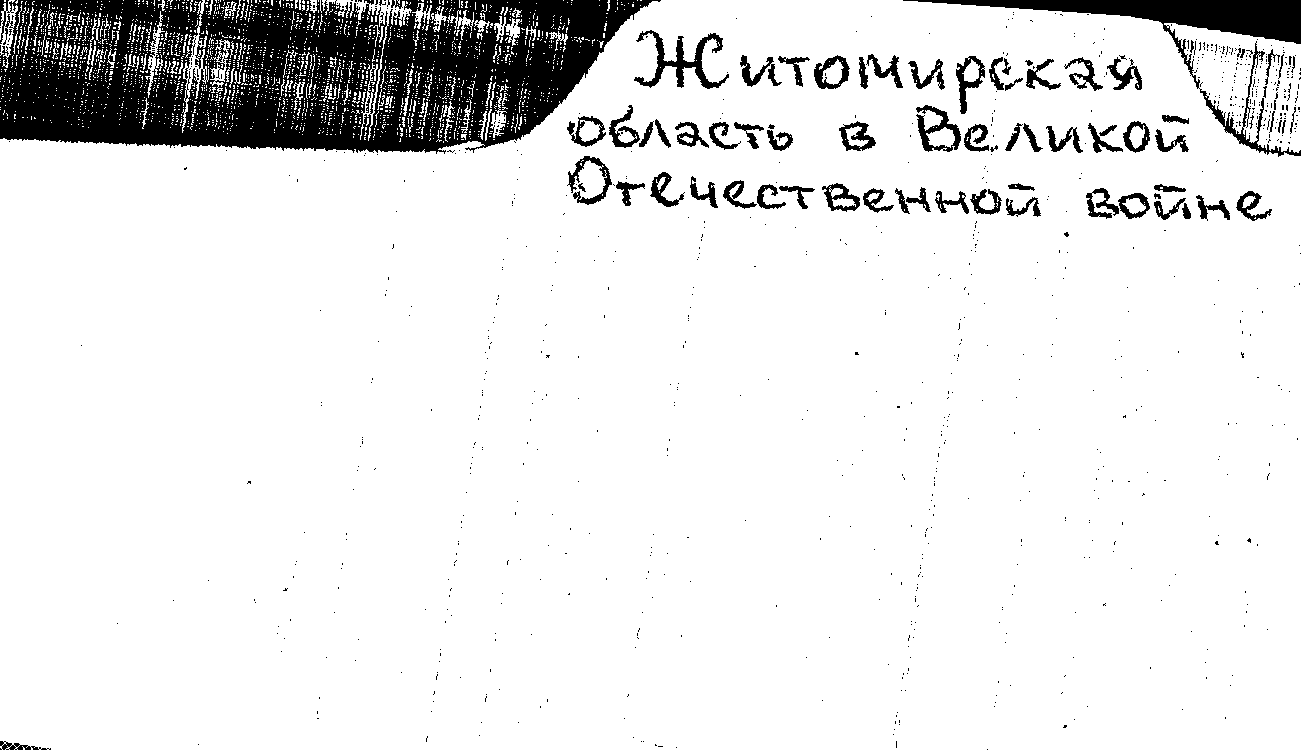 Житомирская
область в Великой
Отечественной войне